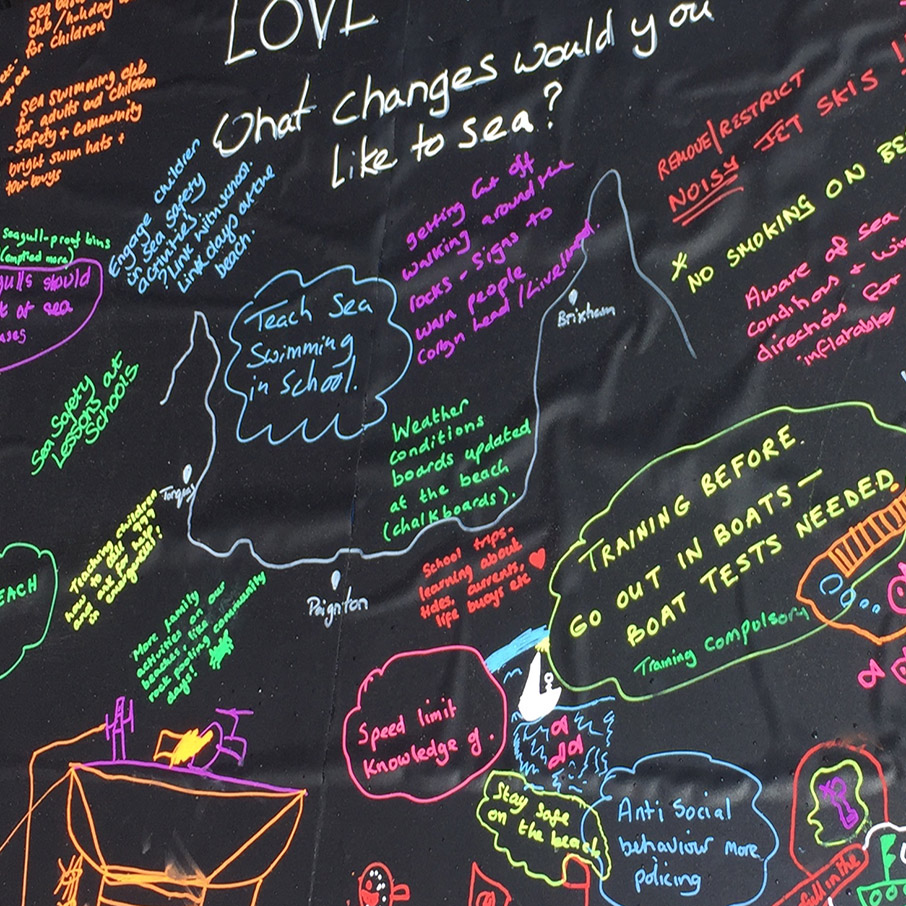 LOVE
What changes would you
like to sea?
club/holiday
for children
sea swimming club
for adults and children
- safety + community
bright swim hats +
tow buoys
Engage children
in sea safety
activities
? Link with school.
Link days at the
beach.
seagull-proof bins
(emptied more)
should
at sea
Teach Sea
Swimming
in School.
getting cut off
walking around the
rocks - signs to
warn people
Brixham
REMOVE/RESTRICT
NOISY JET SKIS !
* NO SMOKING ON BE
Aware of sea
conditions + win
direction for
inflatables
Sea Safety at
Lessons
Schools
Weather
conditions
boards updated
at the beach
(chalkboards).
Torquay
Paignton
Teaching children
how to call 999
and ask for help
School trips-
learning about
tides, currents,
life buoys etc
TRAINING BEFORE.
GO OUT IN BOATS —
BOAT TESTS NEEDED
Training compulsory
EACH
More family
activities on our
beaches, like
rock pooling community
days!
Speed limit
Knowledge of .
Stay safe
on the beach
Anti Social
behaviour more
policing
fall in the